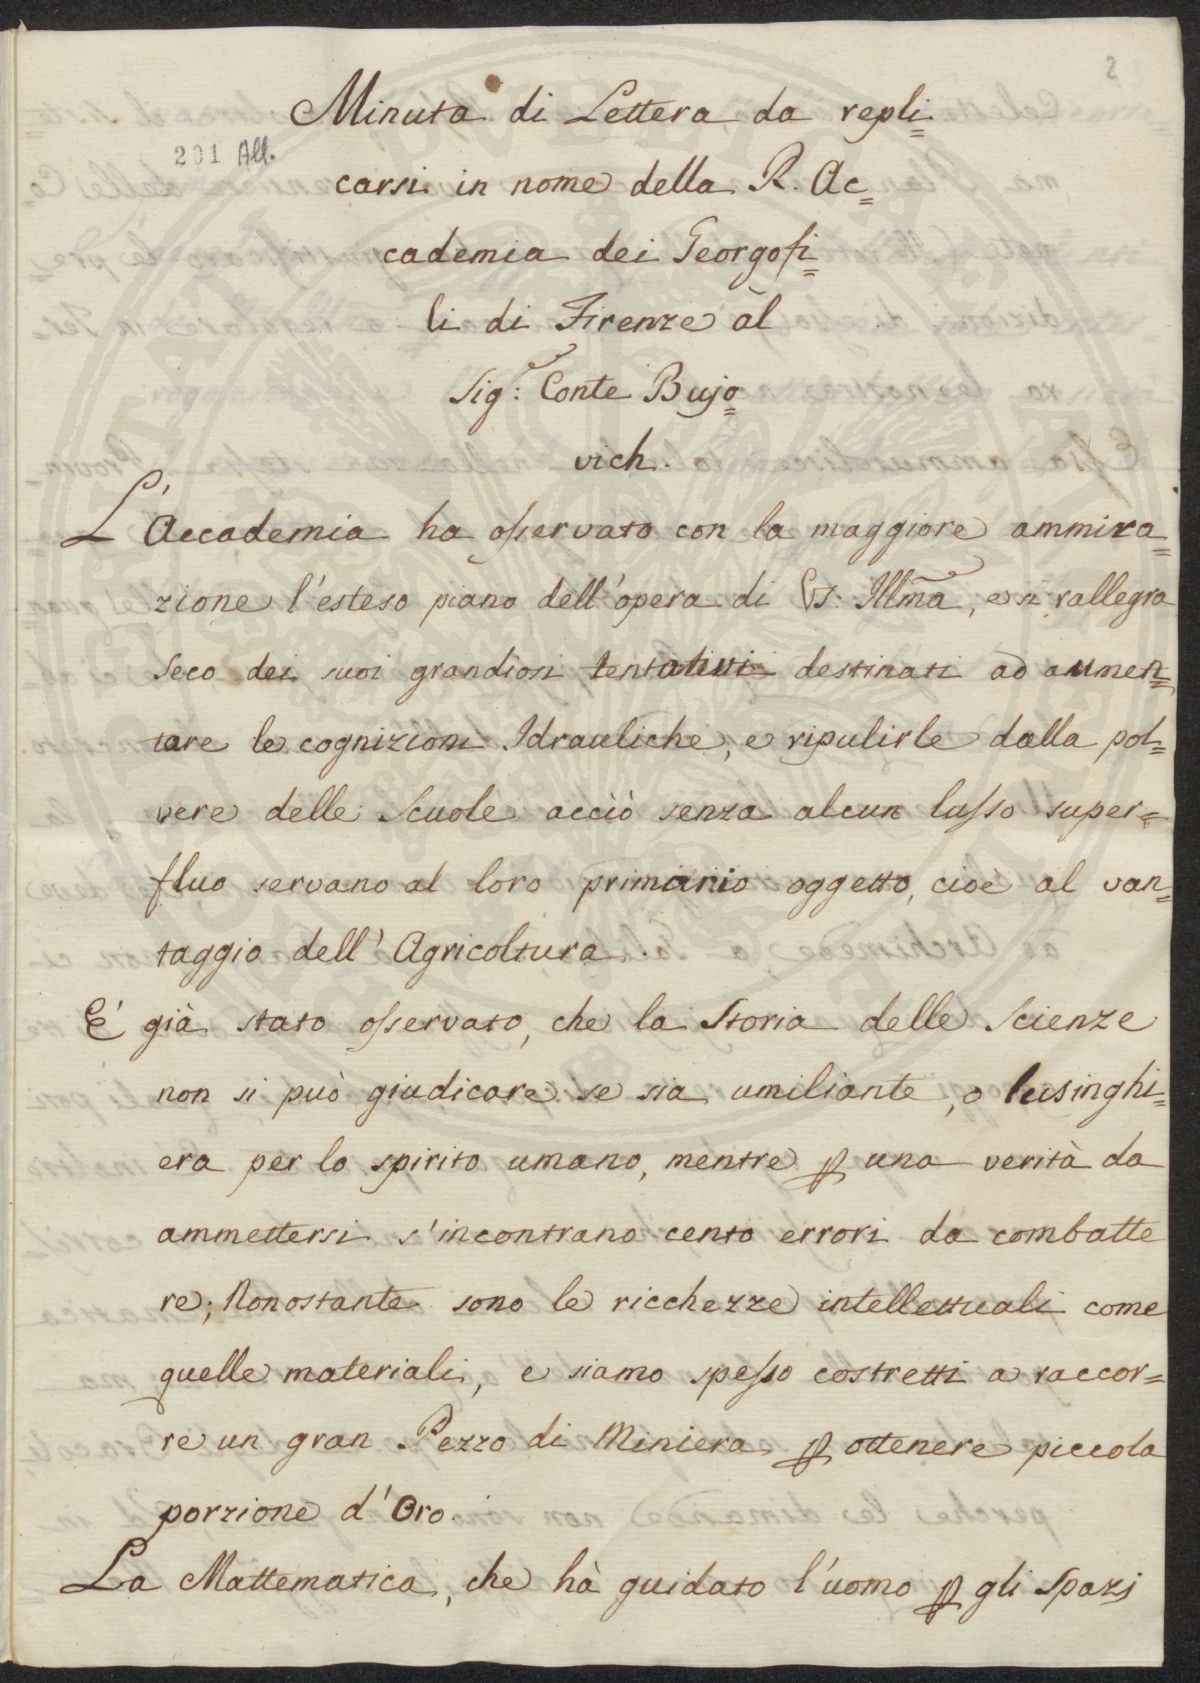 2
Minuta di Lettera da repli=
201 All.
carsi in nome della R. Ac=
cademia dei Georgofi=
li di Firenze al
Sig.r Conte Bujo=
vich.
L'Accademia ha osservato con la maggiore ammira=
zione l'esteso piano dell'opera di VS: Illma, e si rallegra
seco dei suoi grandiosi tentativi destinati ad aumen=
tare le cognizioni Idrauliche, e ripulirle dalla pol=
vere delle Scuole acciò senza alcun lusso super=
fluo servano al loro primario oggetto, cioè al van=
taggio dell'Agricoltura.
E' già stato osservato, che la Storia delle Scienze
non si può giudicare se sia umiliante, o lusinghi=
era per lo spirito umano, mentre p una verità da
ammettersi s'incontrano cento errori da combatte
re; Nonostante sono le ricchezze intellettuali come
quelle materiali, e siamo spesso costretti a raccor=
re un gran Pezzo di Miniera p ottenere piccola
porzione d'Oro.
La Mattematica, che hà guidato l'uomo p gli Spazj